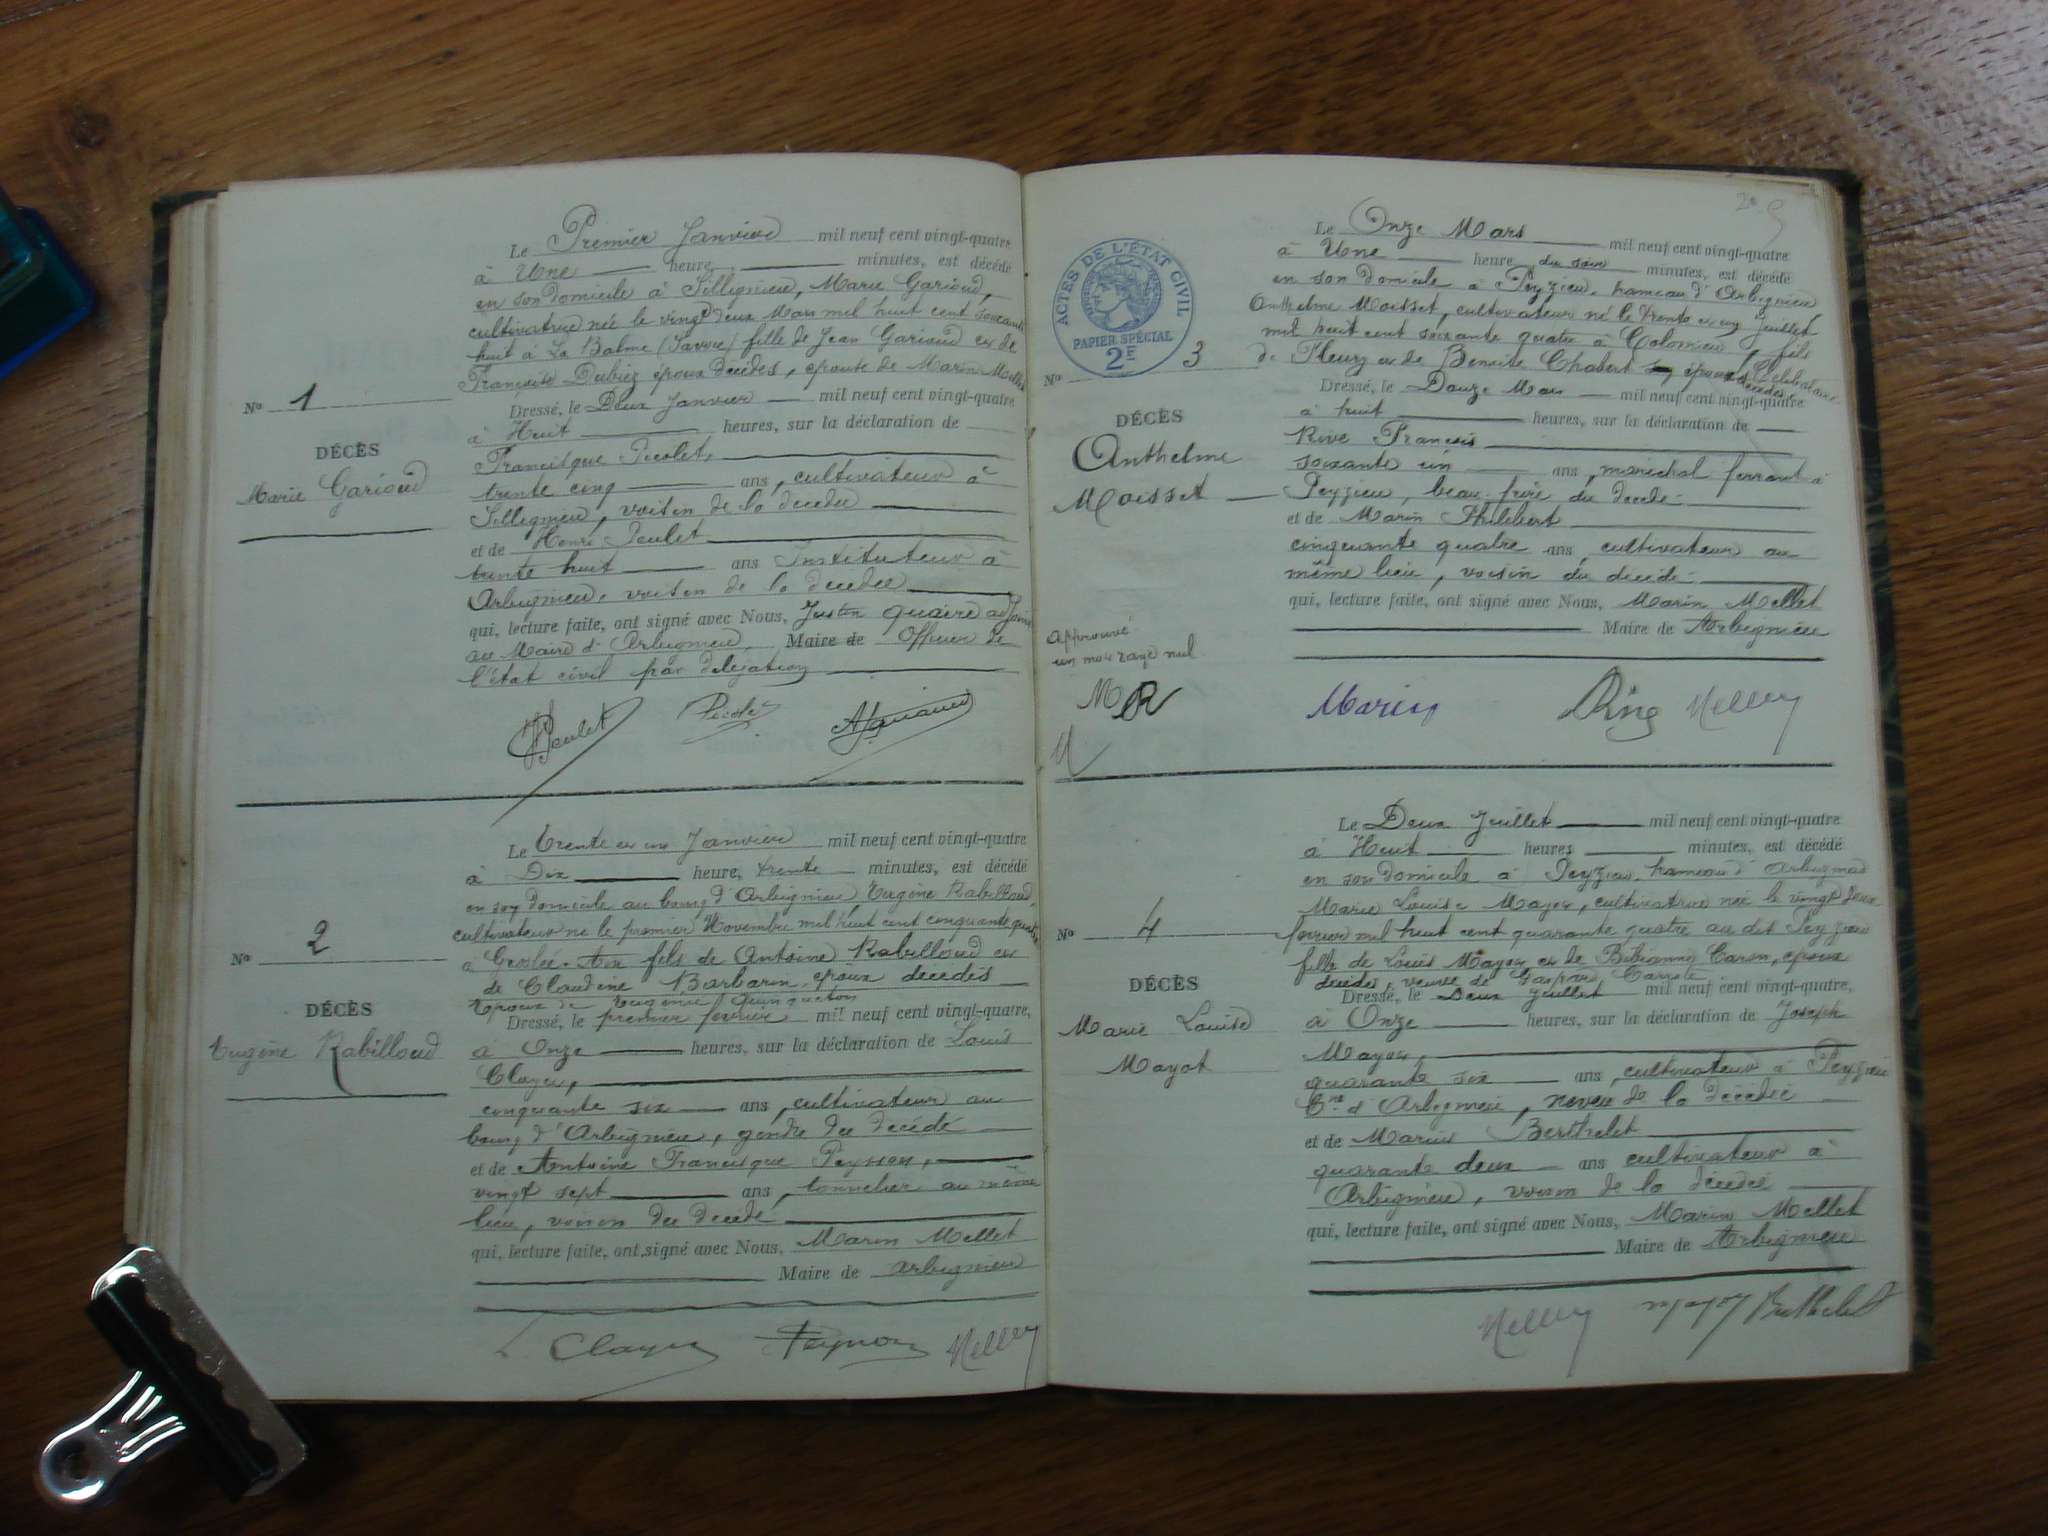 Le Premier Janvier mil neuf cent vingt-quatre
à Une heure, minutes, est décédé
en son domicile à Sillignieu, Marie Gariod,
cultivatrice née le vingt deux Mars mil huit cent soixante
huit à La Balme (Savoie) fille de Jean Gariod et de
Françoise Dubiez époux décédés, épouse de Marin Mollet
No 1
Dressé, le Deux Janvier mil neuf cent vingt-quatre
à Huit heures, sur la déclaration de
DÉCÈS
Marie Gariod
Francisque Picolet,
trente cinq ans, cultivateur à
Sillignieu, voisin de la décédée
et de Henri Peulet
trente huit ans Instituteur à
Arbignieu, voisin de la décédée
qui, lecture faite, ont signé avec Nous, Justin adjoint
au Maire d'Arbignieu, Maire de Officier de
l'état civil par délégation
HPeulet Picolet
Le trente et un Janvier mil neuf cent vingt-quatre
à Dix heure, trente minutes, est décédé
en son domicile au bourg d'Arbignieu, Eugène Rabilloud,
cultivateur né le premier Novembre mil huit cent cinquante quatre
à Groslée. Ain fils de Antoine Rabilloud et
de Claudine Barbarin, époux décédés
Epoux de Eugénie Quinqueton
No 2
DÉCÈS
Eugène Rabilloud
Dressé, le premier février mil neuf cent vingt-quatre,
à Onze heures, sur la déclaration de Louis
Clayet,
cinquante six ans, cultivateur au
bourg d'Arbignieu, gendre du décédé
et de Antoine Francisque Peysson,
vingt sept ans, tonnelier au même
lieu, voisin du décédé
qui, lecture faite, ont signé avec Nous, Marin Mellet
Maire de Arbignieu
Mellet
2
ACTES DE L'ÉTAT CIVIL
PAPIER SPÉCIAL
2E
Le Onze Mars mil neuf cent vingt-quatre
à Une heure du soir minutes, est décédé
en son domicile à Peyzieu, hameau d'Arbignieu
Anthelme Moisset, cultivateur né le trente et un Juillet
mil huit cent soixante quatre à Colomieu, fils
de Fleury et de Benoite Chabert époux décédés Célibataire
No 3
DÉCÈS
Anthelme
Moisset
Dressé, le Douze Mars mil neuf cent vingt-quatre
à huit heures, sur la déclaration de
Rive François
soixante un ans, maréchal ferrant à
Peyzieu, beau-frère du décédé
et de Marin Philibert
cinquante quatre ans, cultivateur au
même lieu, voisin du décédé
qui, lecture faite, ont signé avec Nous, Marin Mellet
Maire de Arbignieu
Approuvé
un mot rayé nul
M R
Marin Rive Mellet
M
Le Deux Juillet mil neuf cent vingt-quatre
à Huit heures minutes, est décédé
en son domicile à Peyzieu, hameau d'Arbignieu
Marie Louise Mayot, cultivatrice née le vingt deux
février mil huit cent quarante quatre au dit Peyzieu
fille de Louis Mayot et de Bibianne Caron, époux
décédés, veuve de Gaspard
No 4
DÉCÈS
Marie Louise
Mayot
Dressé, le Deux Juillet mil neuf cent vingt-quatre,
à Onze heures, sur la déclaration de Joseph
Mayot,
quarante six ans, cultivateur à Peyzieu
Cne d'Arbignieu, neveu de la décédée
et de Marius Berthelet
quarante deux ans cultivateur à
Arbignieu, voisin de la décédée
qui, lecture faite, ont signé avec Nous, Marin Mellet
Maire de Arbignieu
Mellet mayot Berthelet